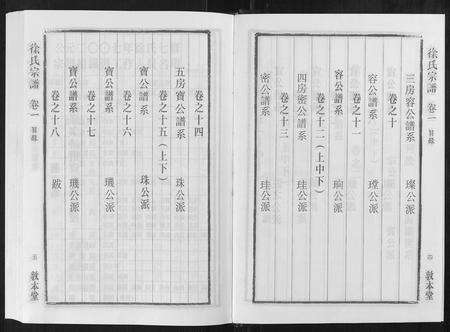 徐氏宗譜 卷一 目錄
三房容公譜系 璨公派
卷之十
容公譜系 瑩公派
卷之十一
容公譜系 珦公派
卷之十二(上中下)
四房密公譜系 珪公派
卷之十三
密公譜系 珪公派
四 敦本堂
卷之十四
五房寶公譜系 珠公派
卷之十五(上下)
寶公譜系 珠公派
卷之十六
寶公譜系 璣公派
卷之十七
寶公譜系 璣公派
卷之十八 跋
徐氏宗譜 卷一 目錄
五 敦本堂